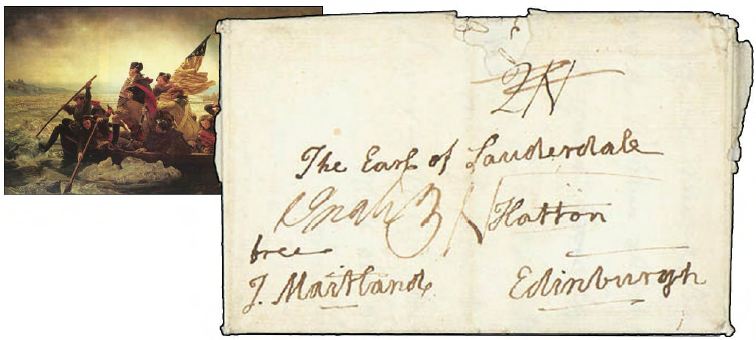 The Earl of Lauderdale
Hatton
free
J. Maitland Edinburgh